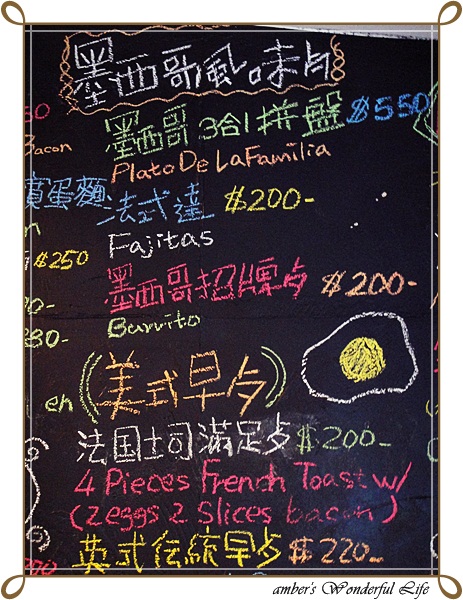 墨西哥風味点
墨西哥3合1拼盤 $550
Bacon
Plato De La Familia
賓蛋麵
法式達 $200-
Fajitas
$250
墨西哥招牌点 $200-
Burrito
en
(美式早点)
法国土司滿足点 $200-
4 Pieces French Toast w/
(2eggs 2 Slices bacon)
英式伝統早点 $220-
amber's Wonderful Life